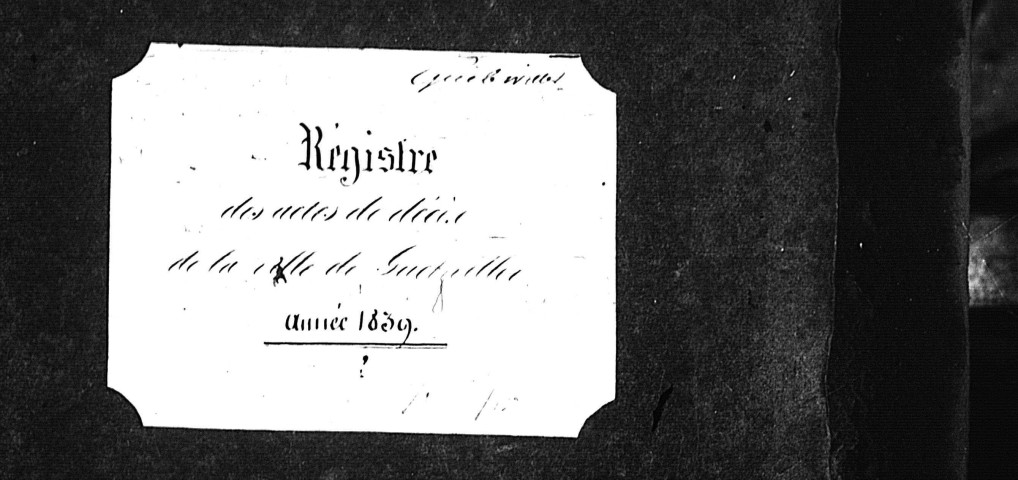 Guebwiller
Régistre
des actes de décès
de la ville de Guebwiller
Année 1839.